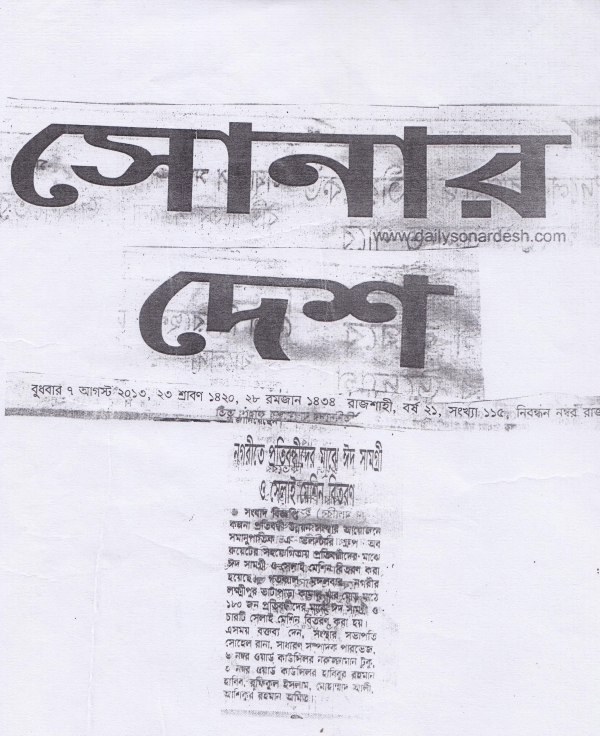 সোনার
www.dailysonardesh.com
দেশ
বুধবার ৭ আগস্ট ২০১৩, ২৩ শ্রাবণ ১৪২০, ২৮ রমজান ১৪৩৪ রাজশাহী, বর্ষ ২১, সংখ্যা ১১৫, নিবন্ধন নম্বর রাজ
নগরীতে প্রতিবন্ধীদের মাঝে ঈদ সামগ্রী
ও সেলাই মেশিন বিতরণ
সংবাদ বিজ্ঞপ্তি
কল্পনা প্রতিবন্ধী উন্নয়ন সংস্থার আয়োজনে
গ্রুপ অব
রুয়েটের সহযোগিতায় প্রতিবন্ধীদের মাঝে
ঈদ সামগ্রী ও সেলাই মেশিন বিতরণ করা
হয়েছে। গতকাল মঙ্গলবার নগরীর
লক্ষ্মীপুর ভাটাপাড়া মাঠে
১৮০ জন প্রতিবন্ধীদের মাঝে ঈদ সামগ্রী ও
চারটি সেলাই মেশিন বিতরণ করা হয়।
এসময় বক্তব্য দেন, সংস্থার সভাপতি
সোহেল রানা, সাধারণ সম্পাদক পারভেজ,
৬ নম্বর ওয়ার্ড কাউন্সিলর নুরুজ্জামান টুকু,
৩ নম্বর ওয়ার্ড কাউন্সিলর হাবিবুর রহমান
হাবিব, রফিকুল ইসলাম, মোহাম্মাদ আলী,
আশিকুর রহমান অমিত।